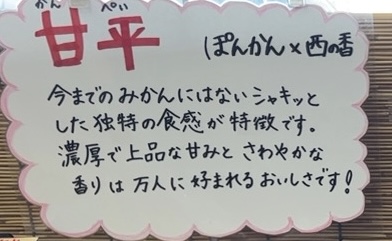 かん ぺい
甘平 ぽんかん×西の香
今までのみかんにはないシャキッと
した独特の食感が特徴です。
濃厚で上品な甘みと さわやかな
香りは万人に好まれるおいしさです!